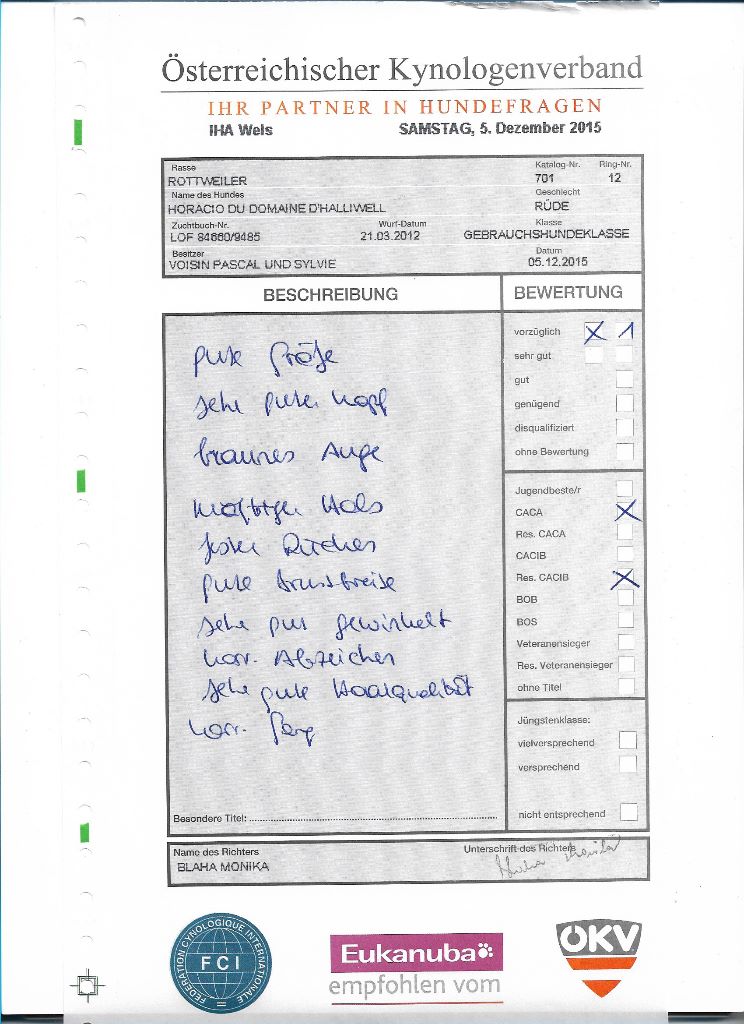 Österreichischer Kynologenverband
IHR PARTNER IN HUNDEFRAGEN
IHA Wels SAMSTAG, 5. Dezember 2015
Rasse Katalog-Nr. Ring-Nr.
ROTTWEILER 701 12
Name des Hundes Geschlecht
HORACIO DU DOMAINE D'HALLIWELL RÜDE
Zuchtbuch-Nr. Wurf-Datum Klasse
LOF 84660/9485 21.03.2012 GEBRAUCHSHUNDEKLASSE
Besitzer Datum
VOISIN PASCAL UND SYLVIE 05.12.2015
BESCHREIBUNG
gute Größe
sehr guter Kopf
braunes Auge
kräftiger Hals
fester Rücken
gute Brustbreite
sehr gut gewinkelt
korr. Abzeichen
sehr gute Haarqualität
korr. Gang
Besondere Titel:
BEWERTUNG
vorzüglich X 1
sehr gut
gut
genügend
disqualifiziert
ohne Bewertung
Jugendbeste/r
CACA X
Res. CACA
CACIB
Res. CACIB X
BOB
BOS
Veteranensieger
Res. Veteranensieger
ohne Titel
Jüngstenklasse:
vielversprechend
versprechend
nicht entsprechend
Name des Richters Unterschrift des Richters
BLAHA MONIKA
FEDERATION CYNOLOGIQUE INTERNATIONALE
FCI
Eukanuba
empfohlen vom
ÖKV